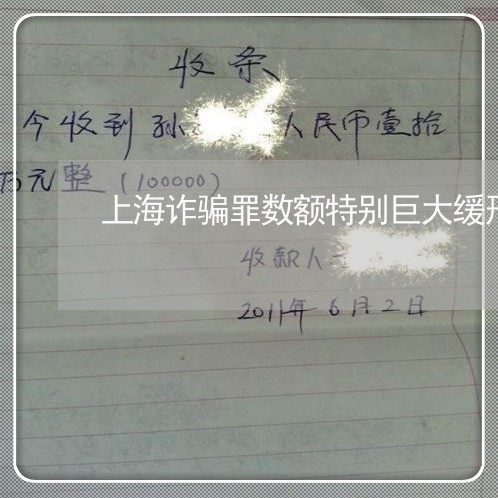 收条
今收到孙 人民币壹拾
万元整（100000）
上海诈骗罪数额特别巨大缓刑
收款人
2011年6月2日